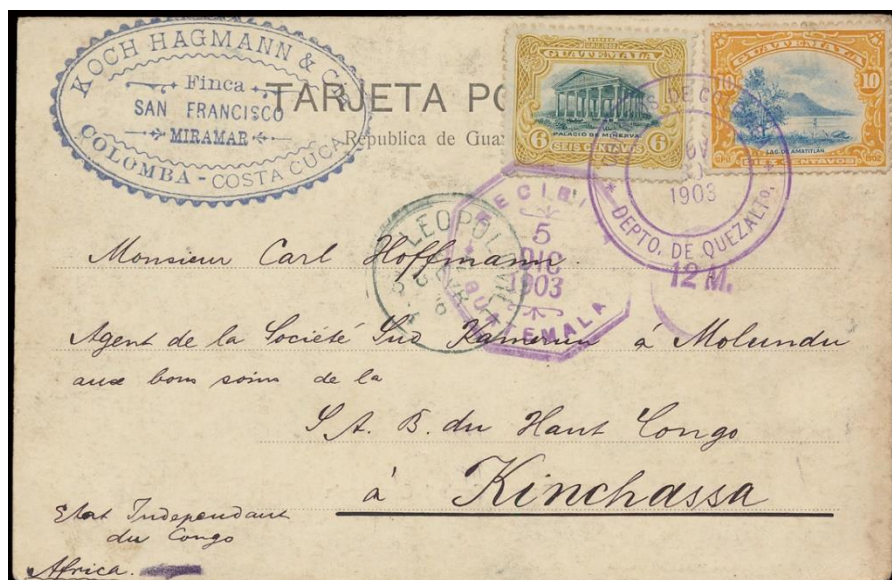 KOCH HAGMANN & Co
Finca
SAN FRANCISCO
MIRAMAR
COLOMBA - COSTA CUCA
TARJETA PO
Republica de Gua
GUATEMALA
6 6
PALACIO DE MINERVA
SEIS CENTAVOS
GUATEMALA
10 10
LAG. DE AMATITLÁN
DIEZ CENTAVOS
1902
1903
DEPTO. DE QUEZALTO.
12 M.
RECIBI
5
DIC
1903
GUATEMALA
LEOPOLDVILLE
Monsieur Carl Hoffmann.
Agent de la Société Sud Kamerun à Molundu
aux bons soins de la
S. A. B. du Haut Congo
à Kinchassa
Etat Independant
du Congo
Africa.